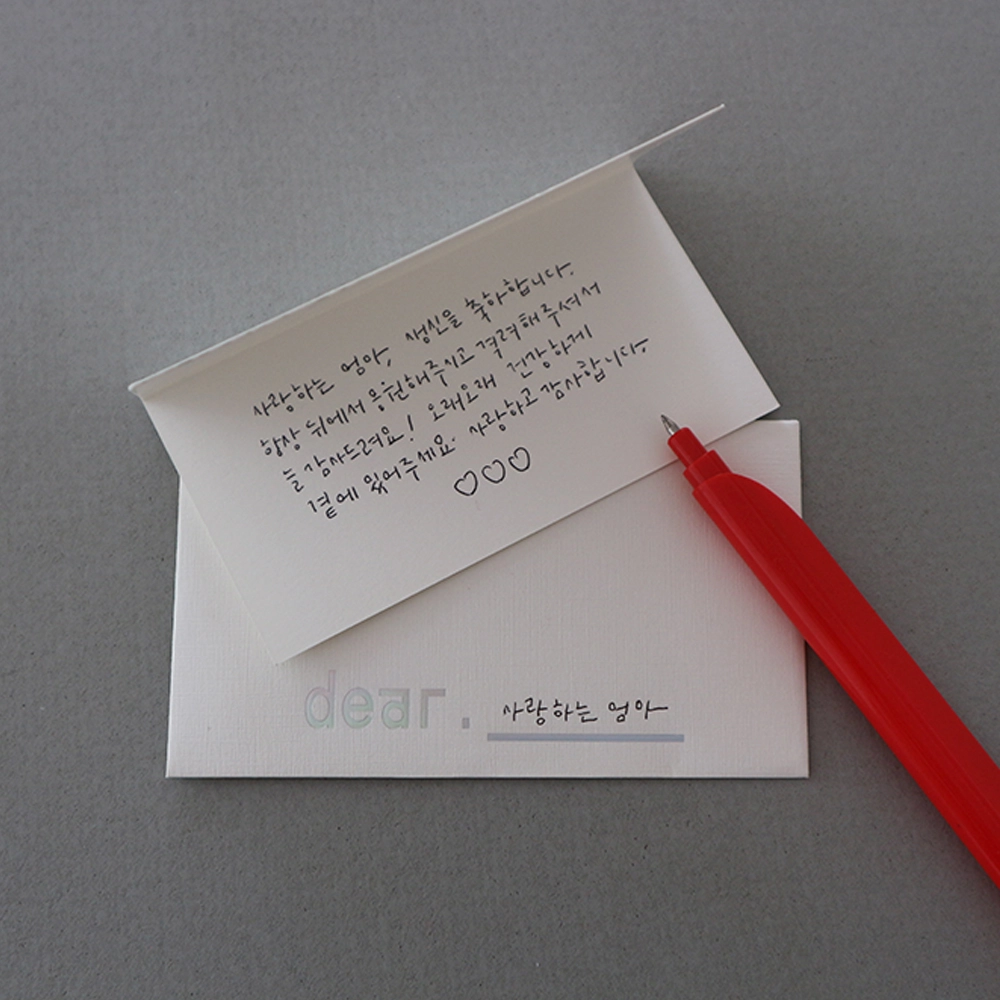 사랑하는 엄마, 생신을 축하합니다.
항상 뒤에서 응원해주시고 격려해주셔서
늘 감사드려요! 오래오래 건강하게
곁에 있어주세요. 사랑하고 감사합니다.
♡♡♡
dear. 사랑하는 엄마